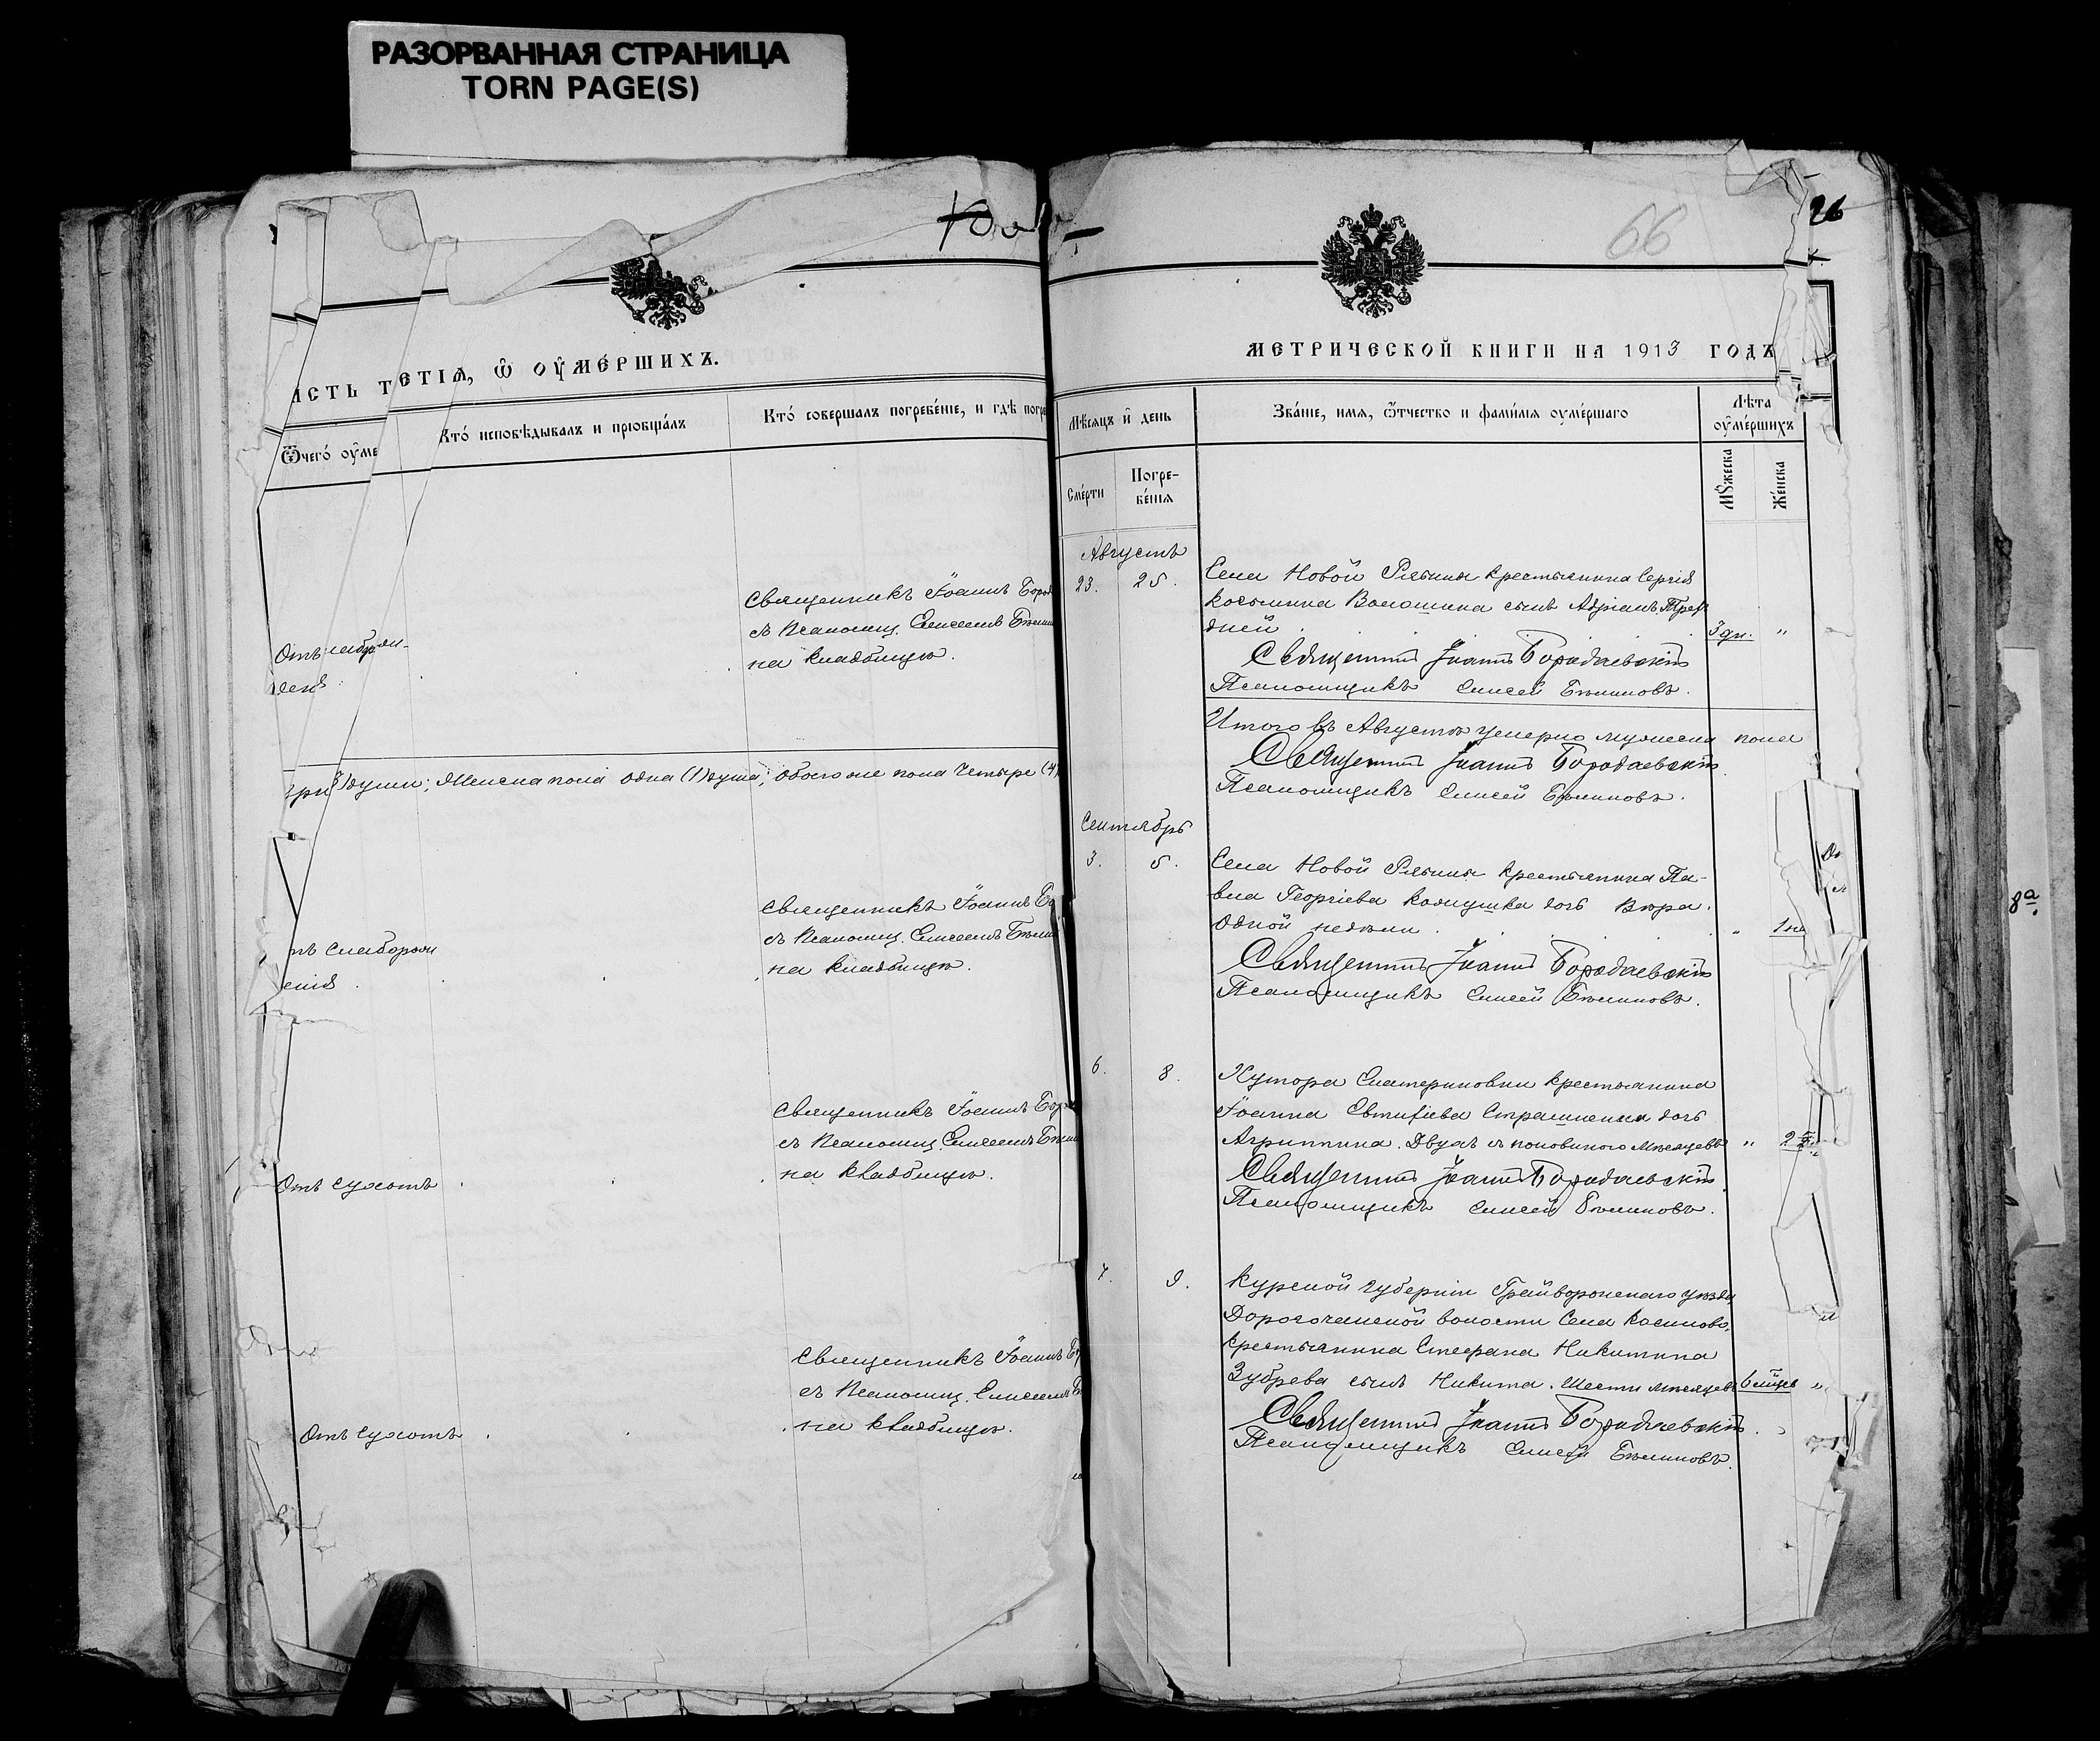 РАЗОРВАННАЯ СТРАНИЦА
TORN PAGE(S)
исть третіѧ, ѿ оумершихъ.
Ѿчегѡ оуме
Кто исповѣдывалъ и пріобщалъ
Кто совершалъ погребеніе, и гдѣ погре
Отъ слаборож-
денія
Священникъ Іоаннъ Бород
съ Псаломщ. Елисеемъ Бѣлик
на кладбищѣ.
три души; Женска пола одна (1) душа; Обоего же пола четыре (4)
тъ слаборож
енія
Священникъ Іоаннъ Бо
съ Псаломщ. Елисеемъ Бѣли
на кладбищѣ.
Отъ сухотъ
Священникъ Іоаннъ Бор
съ Псаломщ. Елисеемъ Бѣли
на кладбищѣ.
Отъ сухотъ
Священникъ Іоаннъ Бо
съ Псаломщ. Елисеемъ Б
на кладбищѣ.
66
26
МЕТРИЧЕСКОЙ КНИГИ НА 1913 ГОДЪ
Мѣсяцъ и день
Званіе, имя, ѿтчество и фамилія оумершаго
Лѣта
оумершихъ
Смерти
Погре-
бенія
Мужеска
Женска
Августъ
23. 25. Села Новой Рябины крестьянина Сергія
Косьмина Волошина сынъ Адріанъ Трехъ
дней 3 дн. "
Священникъ Іоаннъ Бородаевскій
Псаломщикъ Елисей Бѣликовъ.
Итого въ Августѣ умерло мужеска пола
Священникъ Іоаннъ Бородаевскій
Псаломщикъ Елисей Бѣликовъ.
Сентябрь
3. 5. Села Новой Рябины крестьянина Па-
вла Георгіева дочь Вѣра.
Одной недѣли " 1 не
Священникъ Іоаннъ Бородаевскій
Псаломщикъ Елисей Бѣликовъ.
6. 8. Хутора Екатериновки крестьянина
Іоанна Евтихіева Страшненка дочь
Агриппина. Двухъ съ половиною мѣсяцевъ " 2
Священникъ Іоаннъ Бородаевскій
Псаломщикъ Елисей Бѣликовъ.
7. 9. Курской губерніи Грайворонскаго уѣзда
Дорогочанской волости Села Косилово,
крестьянина Стефана Никитина
Зубрева сынъ Никита. Шести мѣсяцевъ 6 мѣсц "
Священникъ Іоаннъ Бородаевскій
Псаломщикъ Елисей Бѣликовъ.
8а.